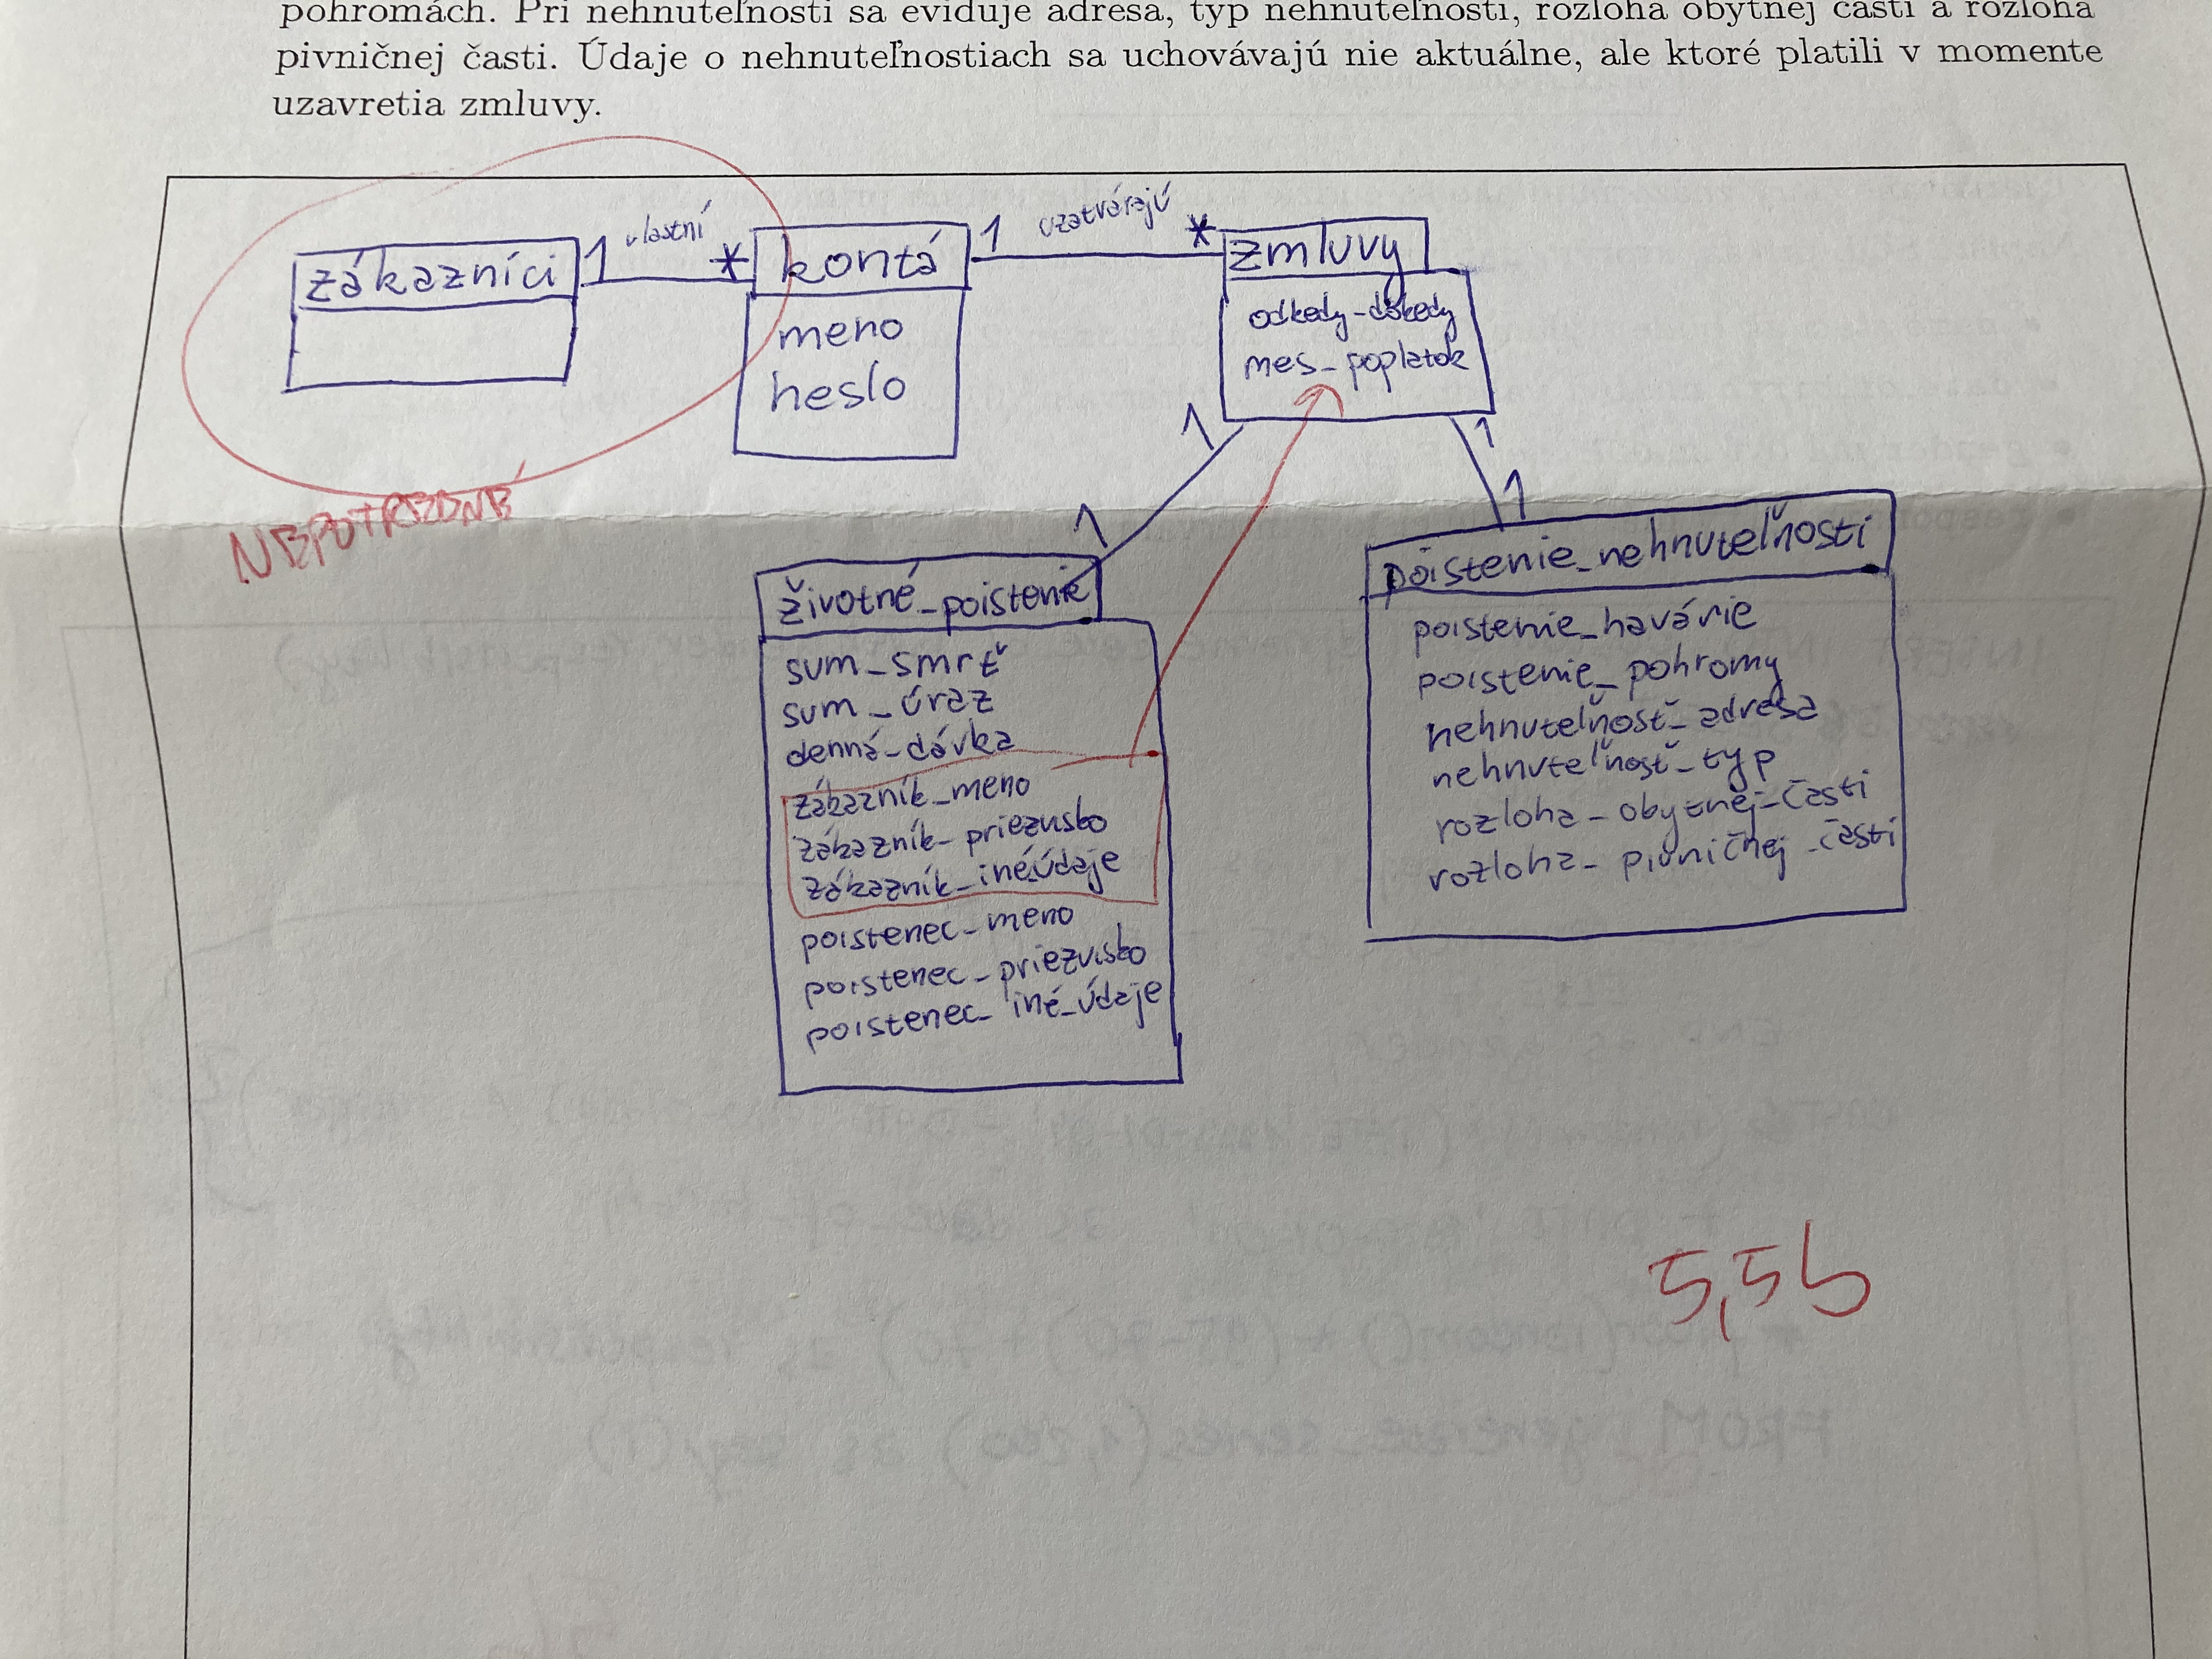 pohromách. Pri nehnuteľnosti sa eviduje adresa, typ nehnuteľnosti, rozloha obytnej časti a rozloha
pivničnej časti. Údaje o nehnuteľnostiach sa uchovávajú nie aktuálne, ale ktoré platili v momente
uzavretia zmluvy.
zákazníci
1 vlastní *
kontá
meno
heslo
1 uzatvárajú *
zmluvy
odkedy-dokedy
mes_poplatok
NEPOTREBNÉ
1
1
1
1
životné_poistenie
sum_smrť
sum_úraz
denná_dávka
zákazník_meno
zákazník_priezvisko
zákazník_inéúdaje
poistenec_meno
poistenec_priezvisko
poistenec_iné_údaje
poistenie_nehnuteľnosti
poistenie_havárie
poistenie_pohromy
nehnuteľnosť_adresa
nehnuteľnosť_typ
rozloha_obytnej_časti
rozloha_pivničnej_časti
5,5b